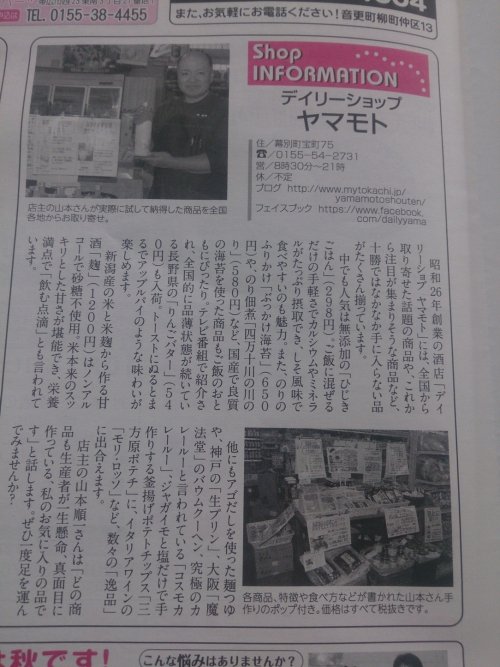 TEL. 0155-38-4455
また、お気軽にお電話ください！音更町柳町仲区13
Shop
INFORMATION
デイリーショップ
ヤマモト
住／幕別町宝町75
☎／0155-54-2731
営／8時30分～21時
休／不定
ブログ http://www.mytokachi.jp/
yamamotoshouten/
フェイスブック https://www.facebook.
com/dailyyama
店主の山本さんが実際に試して納得した商品を全国
各地からお取り寄せ。
昭和26年創業の酒店「デイ
リーショップ ヤマモト」には、全国から
取り寄せた話題の商品や、これか
ら注目が集まりそうな商品など、
十勝ではなかなか手に入らない品
がたくさん揃っています。
中でも人気は無添加の「ひじき
ごはん」（298円）。ご飯に混ぜる
だけの手軽さでカルシウムやミネラ
ルがたっぷり摂取でき、しそ風味で
食べやすいのも魅力。また、のりの
ふりかけ「ぶっかけ海苔」（650
円）や、のり佃煮「四万十川の川の
り」（580円）など、国産で良質
の海苔を使った商品もご飯のおと
もにぴったり。テレビ番組で紹介さ
れ、全国的に品薄状態が続いてい
る長野県の「りんごバター」（54
0円）も入荷。トーストにぬるとま
るでアップルパイのような味わいが
楽しめます。
新潟産の米と米麹から作る甘
酒「麹」（1200円）はノンアル
コールで砂糖不使用。米本来のスッ
キリとした甘さが堪能でき、栄養
満点で「飲む点滴」とも言われて
います。
他にもアゴだしを使った麺つゆ
や、神戸の「生プリン」、大阪「魔
法堂」のバウムクーヘン、究極のカ
レールーと言われている「コスモカ
レールー」、ジャガイモと塩だけで手
作りする釜揚げポテトチップス「三
方原ポテチ」に、イタリアワインの
「モリ・ロッソ」など、数々の「逸品」
に出合えます。
店主の山本順一さんは「どの商
品も生産者が一生懸命、真面目に
作っている、私のお気に入りの品で
す」と話します。ぜひ一度足を運ん
でみませんか？
各商品、特徴や食べ方などが書かれた山本さん手
作りのポップ付き。価格はすべて税抜きです。
は秋です！
こんな悩みはありませんか？